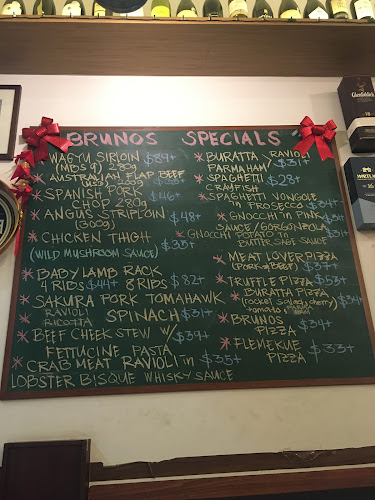 BRUNOS SPECIALS
WAGYU SIRLOIN $89+
(MBS 9) 280g
* AUSTRALIAN FLAP BEEF
* SPANISH PORK $46+
CHOP 280g
* ANGUS STRIPLOIN $48+
(300g)
* CHICKEN THIGH
(WILD MUSHROOM SAUCE) $35+
* BABY LAMB RACK
4 RIBS $44+ 8 RIBS $82+
* SAKURA PORK TOMAHAWK
RAVIOLI SPINACH $31+
RICOTTA
* BEEF CHEEK STEW W/ $39+
FETTUCINE PASTA
* CRAB MEAT RAVIOLI in $35+
LOBSTER BISQUE WHISKY SAUCE
* BURATTA RAVIOLI
PARMAHAM $31+
* SPAGHETTI $28+
CRAYFISH
* SPAGHETTI VONGOLE
PROSECO $34+
* GNOCCHI in PINK
SAUCE/GORGONZOLA $31+
* GNOCCHI POTATO in
BUTTER SAGE SAUCE
* MEAT LOVER PIZZA
(PORK & BEEF) $37+
* TRUFFLE PIZZA $53+
* BURATTA PIZZA
(rocket salad, cherry $34+
tomato &
* BRUNOS $34+
PIZZA
* FLEMEKUE $33+
PIZZA
Glenfiddich